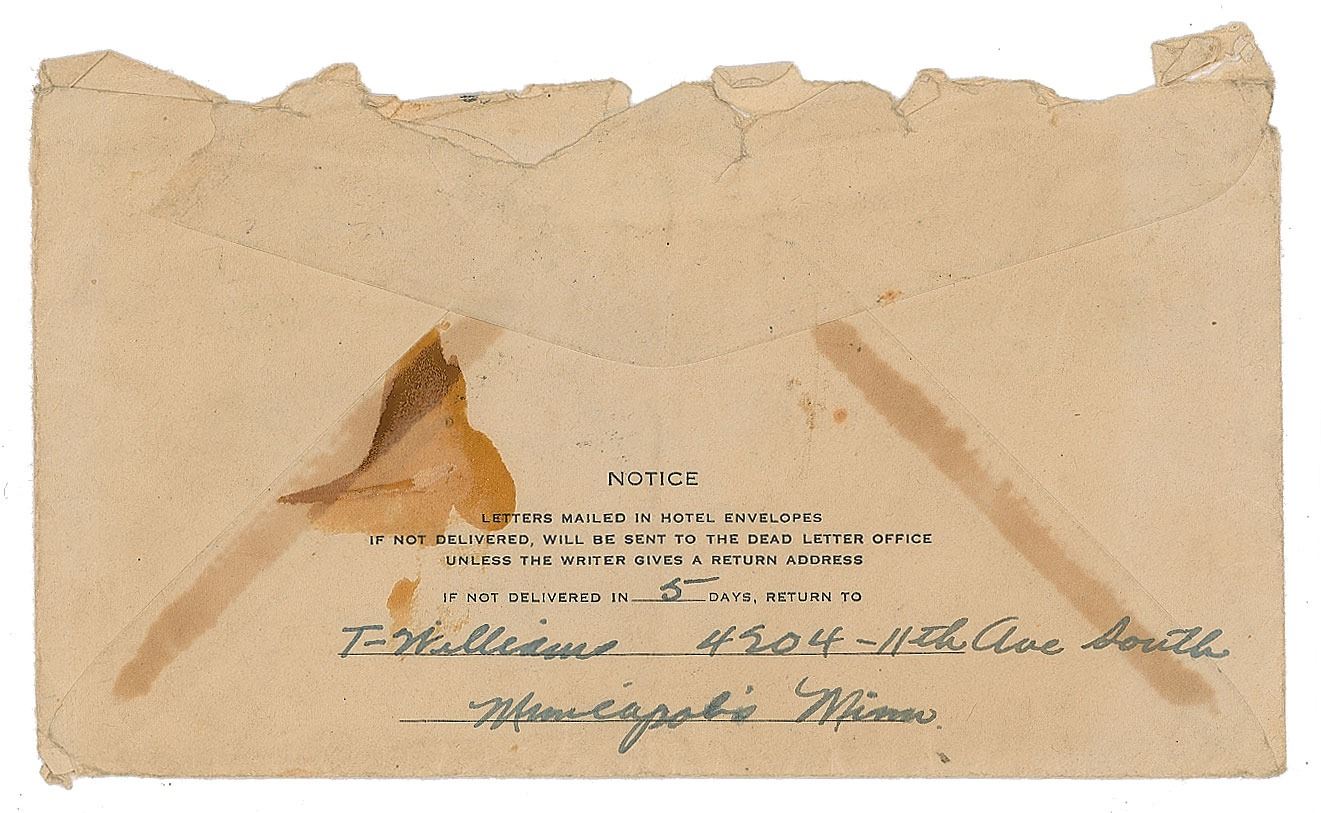 NOTICE
LETTERS MAILED IN HOTEL ENVELOPES
IF NOT DELIVERED, WILL BE SENT TO THE DEAD LETTER OFFICE
UNLESS THE WRITER GIVES A RETURN ADDRESS
IF NOT DELIVERED IN 5 DAYS, RETURN TO
T-Williams 4204-11th Ave South
Minneapolis Minn.